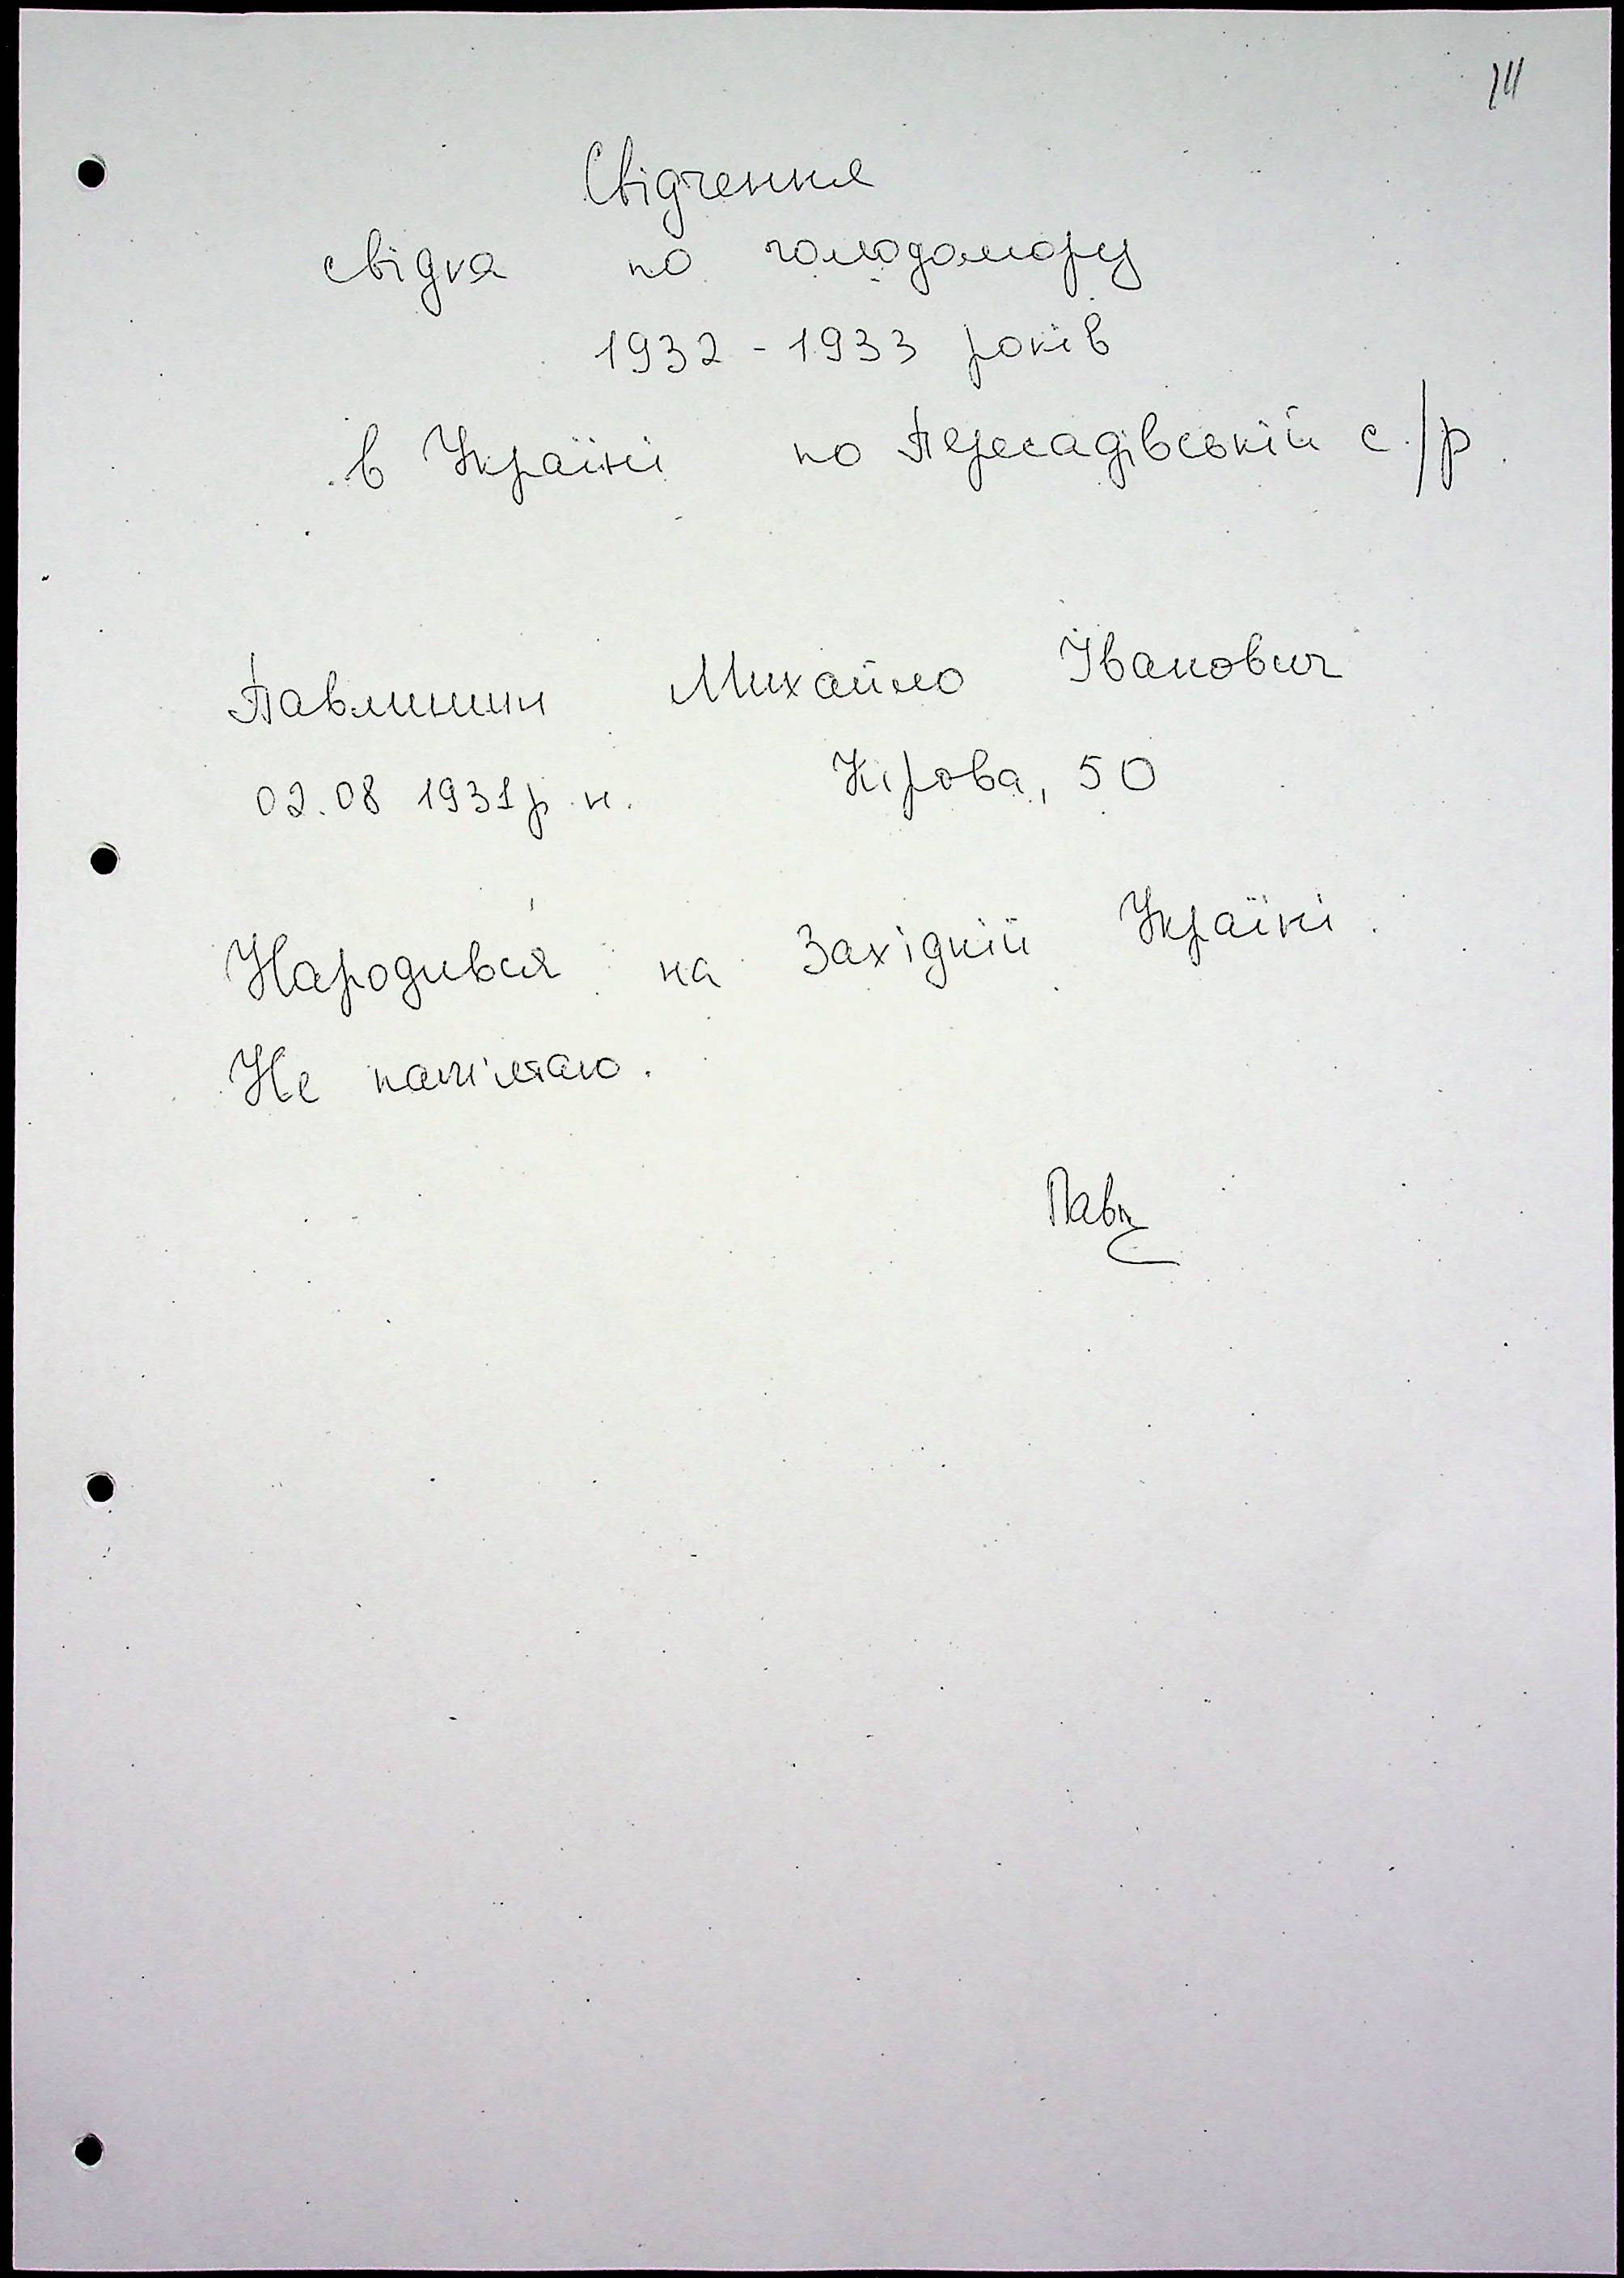 14
Свідчення
свідка по голодомору
1932 - 1933 років
в Україні по Пересадівській с/р
Павлишин Михайло Іванович
02.08 1931 р.н. Кірова, 50
Народився на Західній Україні.
Не пам'ятаю.